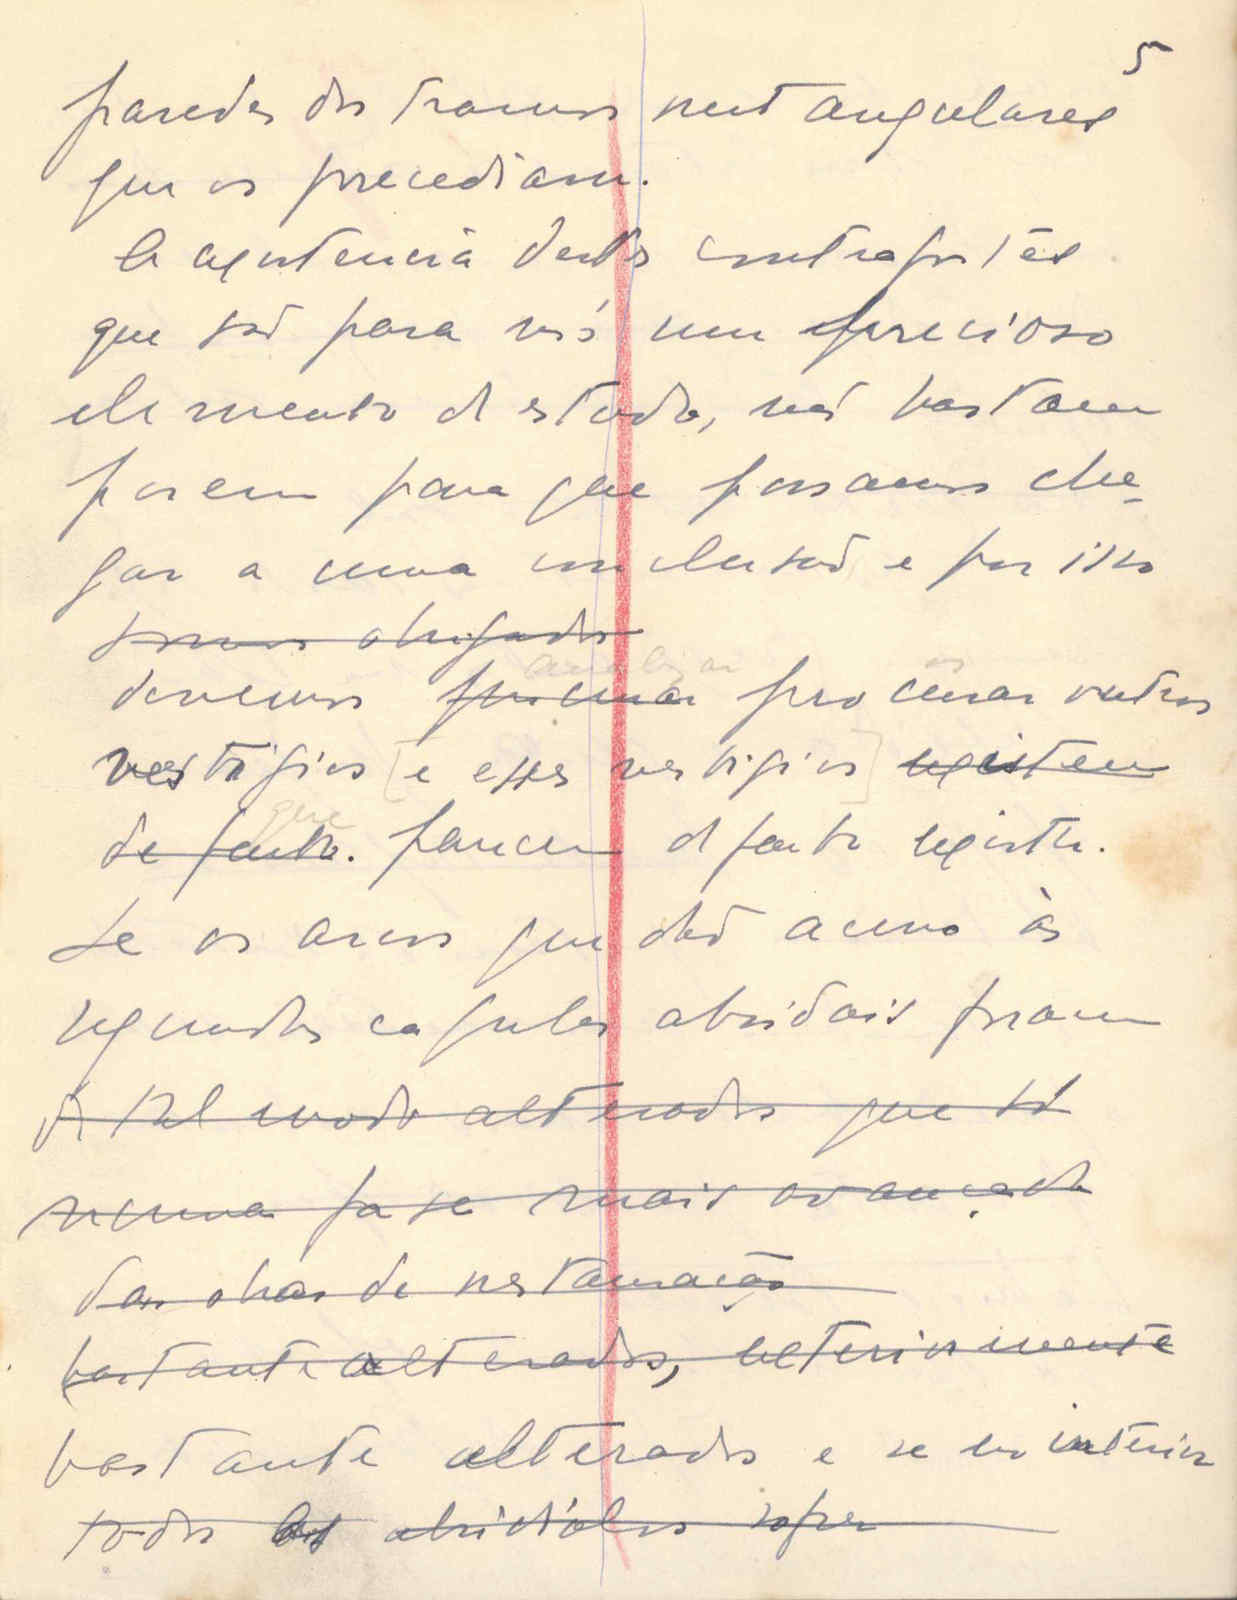 5
paredes dos tramos rectangulares
que os precediam.
A existencia destes contrafortes
que são para nós um precioso
elemento de estudo, não bastam
porem para que possamos che-
gar a uma conclusão e por isso
somos obrigados
analizar os
devemos procurar procurar outros
vestigios [e esses vestigios] existem
que
de facto. parecem de facto existir.
Se os arcos que dão acesso às
segundas capelas absidais foram
de tal modo alterados que só
numa fase mais avançada
das obras de restauração
bastante alterados, exteriormente
bastante alterados e se no interior
todos os absidíolos sofrer